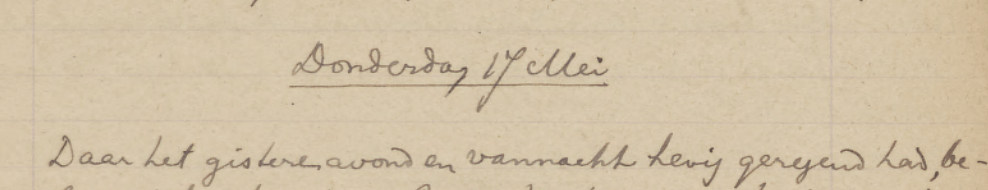 Donderdag 17 Mei
Daar het gisteren avond en vannacht hevig geregend had, be-